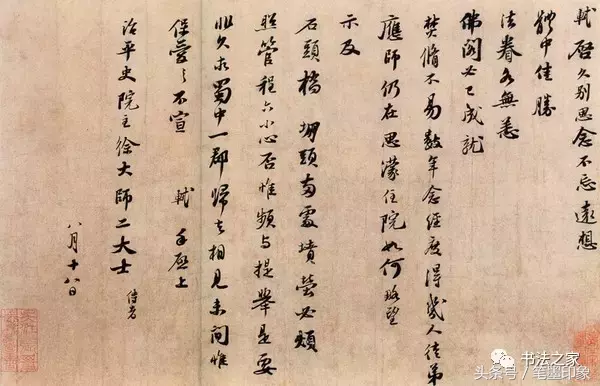 軾啓久别思念不忘遠想
體中佳勝
法眷各無恙
佛閣必已成就
焚脩不易數年念經度得幾人徒弟
應師仍在思濛住院如何略望
示及
石頭橋堋頭兩處墳塋必煩
照管程六小心否惟頻与提舉是要
非久求蜀中一郡歸去相見未間惟
保愛之不宣 軾手啓上
治平史院主徐大師二大士 侍者
八月十八日
书法之家
头条号/笔幽印象